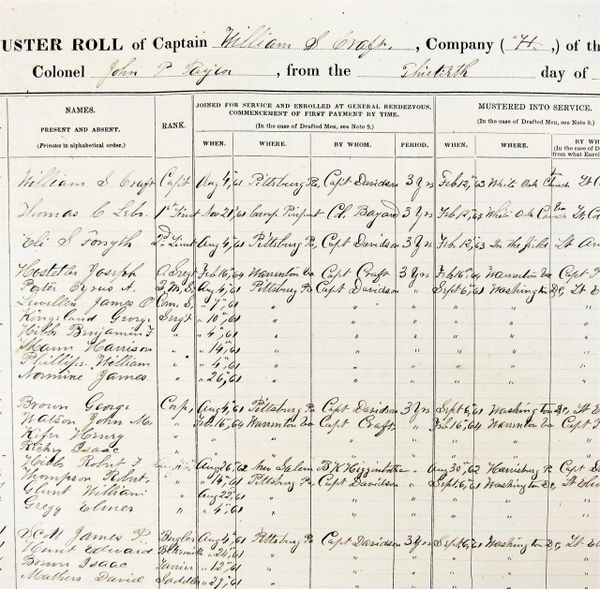 USTER ROLL of Captain William S Craft, Company ("H",) of th
Colonel John P Taylor, from the Thirtieth day of
NAMES.
PRESENT AND ABSENT.
(Privates in alphabetical order.)
RANK.
JOINED FOR SERVICE AND ENROLLED AT GENERAL RENDEZVOUS,
COMMENCEMENT OF FIRST PAYMENT BY TIME.
(In the case of Drafted Men, see Note 9.)
MUSTERED INTO SERVICE.
(In the case of Drafted Men, see Note 9.)
WHEN. WHERE. BY WHOM. PERIOD. WHEN. WHERE. BY WH
(In case of Draft
from what Enroll
William S Craft Capt Aug 4, 61 Pittsburg Pa Capt Davidson 3 Yrs Feb 12, 63 White Oak Church Lt
Thomas C 1st Lieut Nov 21, 61 Camp Pierpont Col. Bayard 3 Yrs Feb 12, 63 White Oak Church Lt
Eli S Forsyth 2d Lieut Aug 4, 61 Pittsburg Pa Capt Davidson 3 Yrs Feb 12, 63 In the field Lt
Hostetler Joseph Sergt Feb 16, 64 Warrenton Va Capt Craft 3 Yrs Feb 16, 64 Warrenton Va Capt
Porter Cyrus A. Q.M.S. Aug 4, 61 Pittsburg Pa Capt Davidson " Sept 6, 61 Washington DC Lt
Lewellen James P Com. S. " 7, 61 " " " " "
Kingsland George Sergt " 10, 61 " " " " "
Hibbs Benjamin F " " 4, 61 " " " " "
Mann Harrison " " 14, 61 " " " " "
Phillips William " " 4, 61 " " " " "
Normine James " " 26, 61 " " " " "
Brown George Corp. Aug 4, 61 Pittsburg Pa Capt Davidson 3 Yrs Sept 6, 61 Washington DC Lt
Watson John M. " Feb 16, 64 Warrenton Va Capt Craft " Feb 16, 64 Warrenton Va Capt
Kifer Henry " " " " " " "
Richy Isaac " " " " " " "
Hibbs Robert F Aug 26, 62 New Salem " Aug 30, 62 Harrisburg Pa Capt
Thompson Robert " " 14, 61 Pittsburg Pa Capt Davidson " Sept 6, 61 Washington DC Lt
Glunt William " Aug 22, 61 " " " " "
Gregg Elmer " " 4, 61 " " " " "
Scott James P. Bugler Aug 4, 61 Pittsburg Pa Capt Davidson 3 Yrs Sept 6, 61 Washington DC Lt
Hunt Edward Bksmith " 24, 61 " " " " "
Bowin Isaac Farrier " 12, 61 " " " " "
Mathers David Saddler " 29, 61 " " " " "